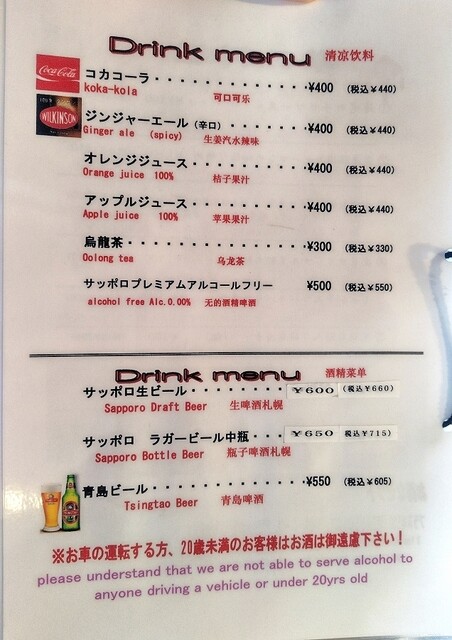 Drink menu 清凉饮料
Coca-Cola コカコーラ・・・・・・・・・・・・¥400 (税込¥440)
koka-kola 可口可乐
WILKINSON ジンジャーエール(辛口)・・・・・・・¥400 (税込¥440)
Ginger ale (spicy) 生姜汽水辣味
オレンジジュース・・・・・・・・・¥400 (税込¥440)
Orange juice 100% 桔子果汁
アップルジュース・・・・・・・・・¥400 (税込¥440)
Apple juice 100% 苹果果汁
烏龍茶・・・・・・・・・・・・・・¥300 (税込¥330)
Oolong tea 乌龙茶
サッポロプレミアムアルコールフリー ¥500 (税込¥550)
alcohol free Alc.0.00% 无的酒精啤酒
Drink menu 酒精菜单
サッポロ生ビール・・・・・・・・¥600 (税込¥660)
Sapporo Draft Beer 生啤酒札幌
サッポロ ラガービール中瓶・・・¥650 税込¥715)
Sapporo Bottle Beer 瓶子啤酒札幌
青島ビール・・・・・・・・・・・・¥550 (税込¥605)
Tsingtao Beer 青島啤酒
※お車の運転する方、20歳未満のお客様はお酒は御遠慮下さい!
please understand that we are not able to serve alcohol to
anyone driving a vehicle or under 20yrs old